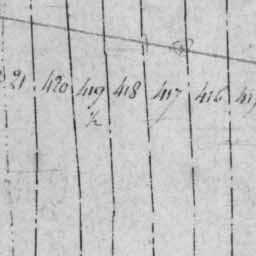 21 420 419 418 417 416 41
h